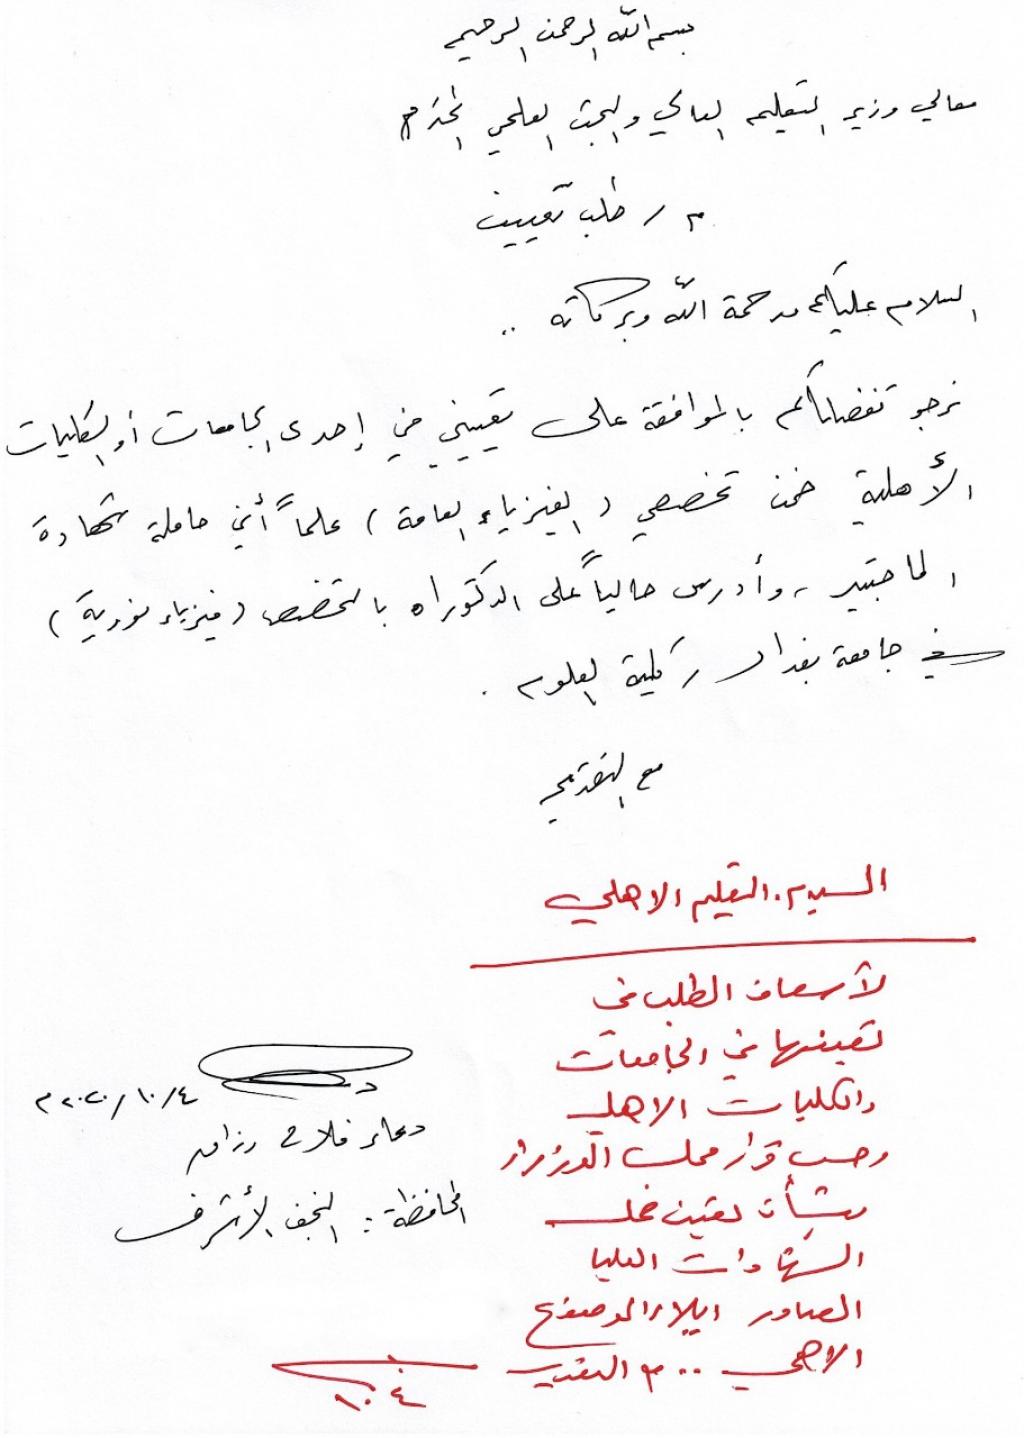 بسم الله الرحمن الرحيم
معالي وزير التعليم العالي والبحث العلمي المحترم
م / طلب تعيين
السلام عليكم ورحمة الله وبركاته ..
نرجو تفضلكم بالموافقة على تعييني في إحدى الجامعات أو الكليات
الأهلية ضمن تخصصي (الفيزياء العامة) علماً أني حاملة شهادة
الماجستير ، وأدرس حالياً على الدكتوراه بالتخصص (فيزياء نووية)
في جامعة بغداد / كلية العلوم .
مع التقدير
السيد م. التعليم الاهلي
لأسعاف الطلب في
تعيينها في الجامعات
والكليات الاهلية
وحسب قرار مجلس الوزراء
بشأن تعيين حملة
الشهادات العليا
الصادر ايلاء الموضوع
الاهمية .. مع التقدير
٤ / ١٠
٢٠٢٠/١٠/٤م
دعاء فلاح رزاق
المحافظة : النجف الأشرف